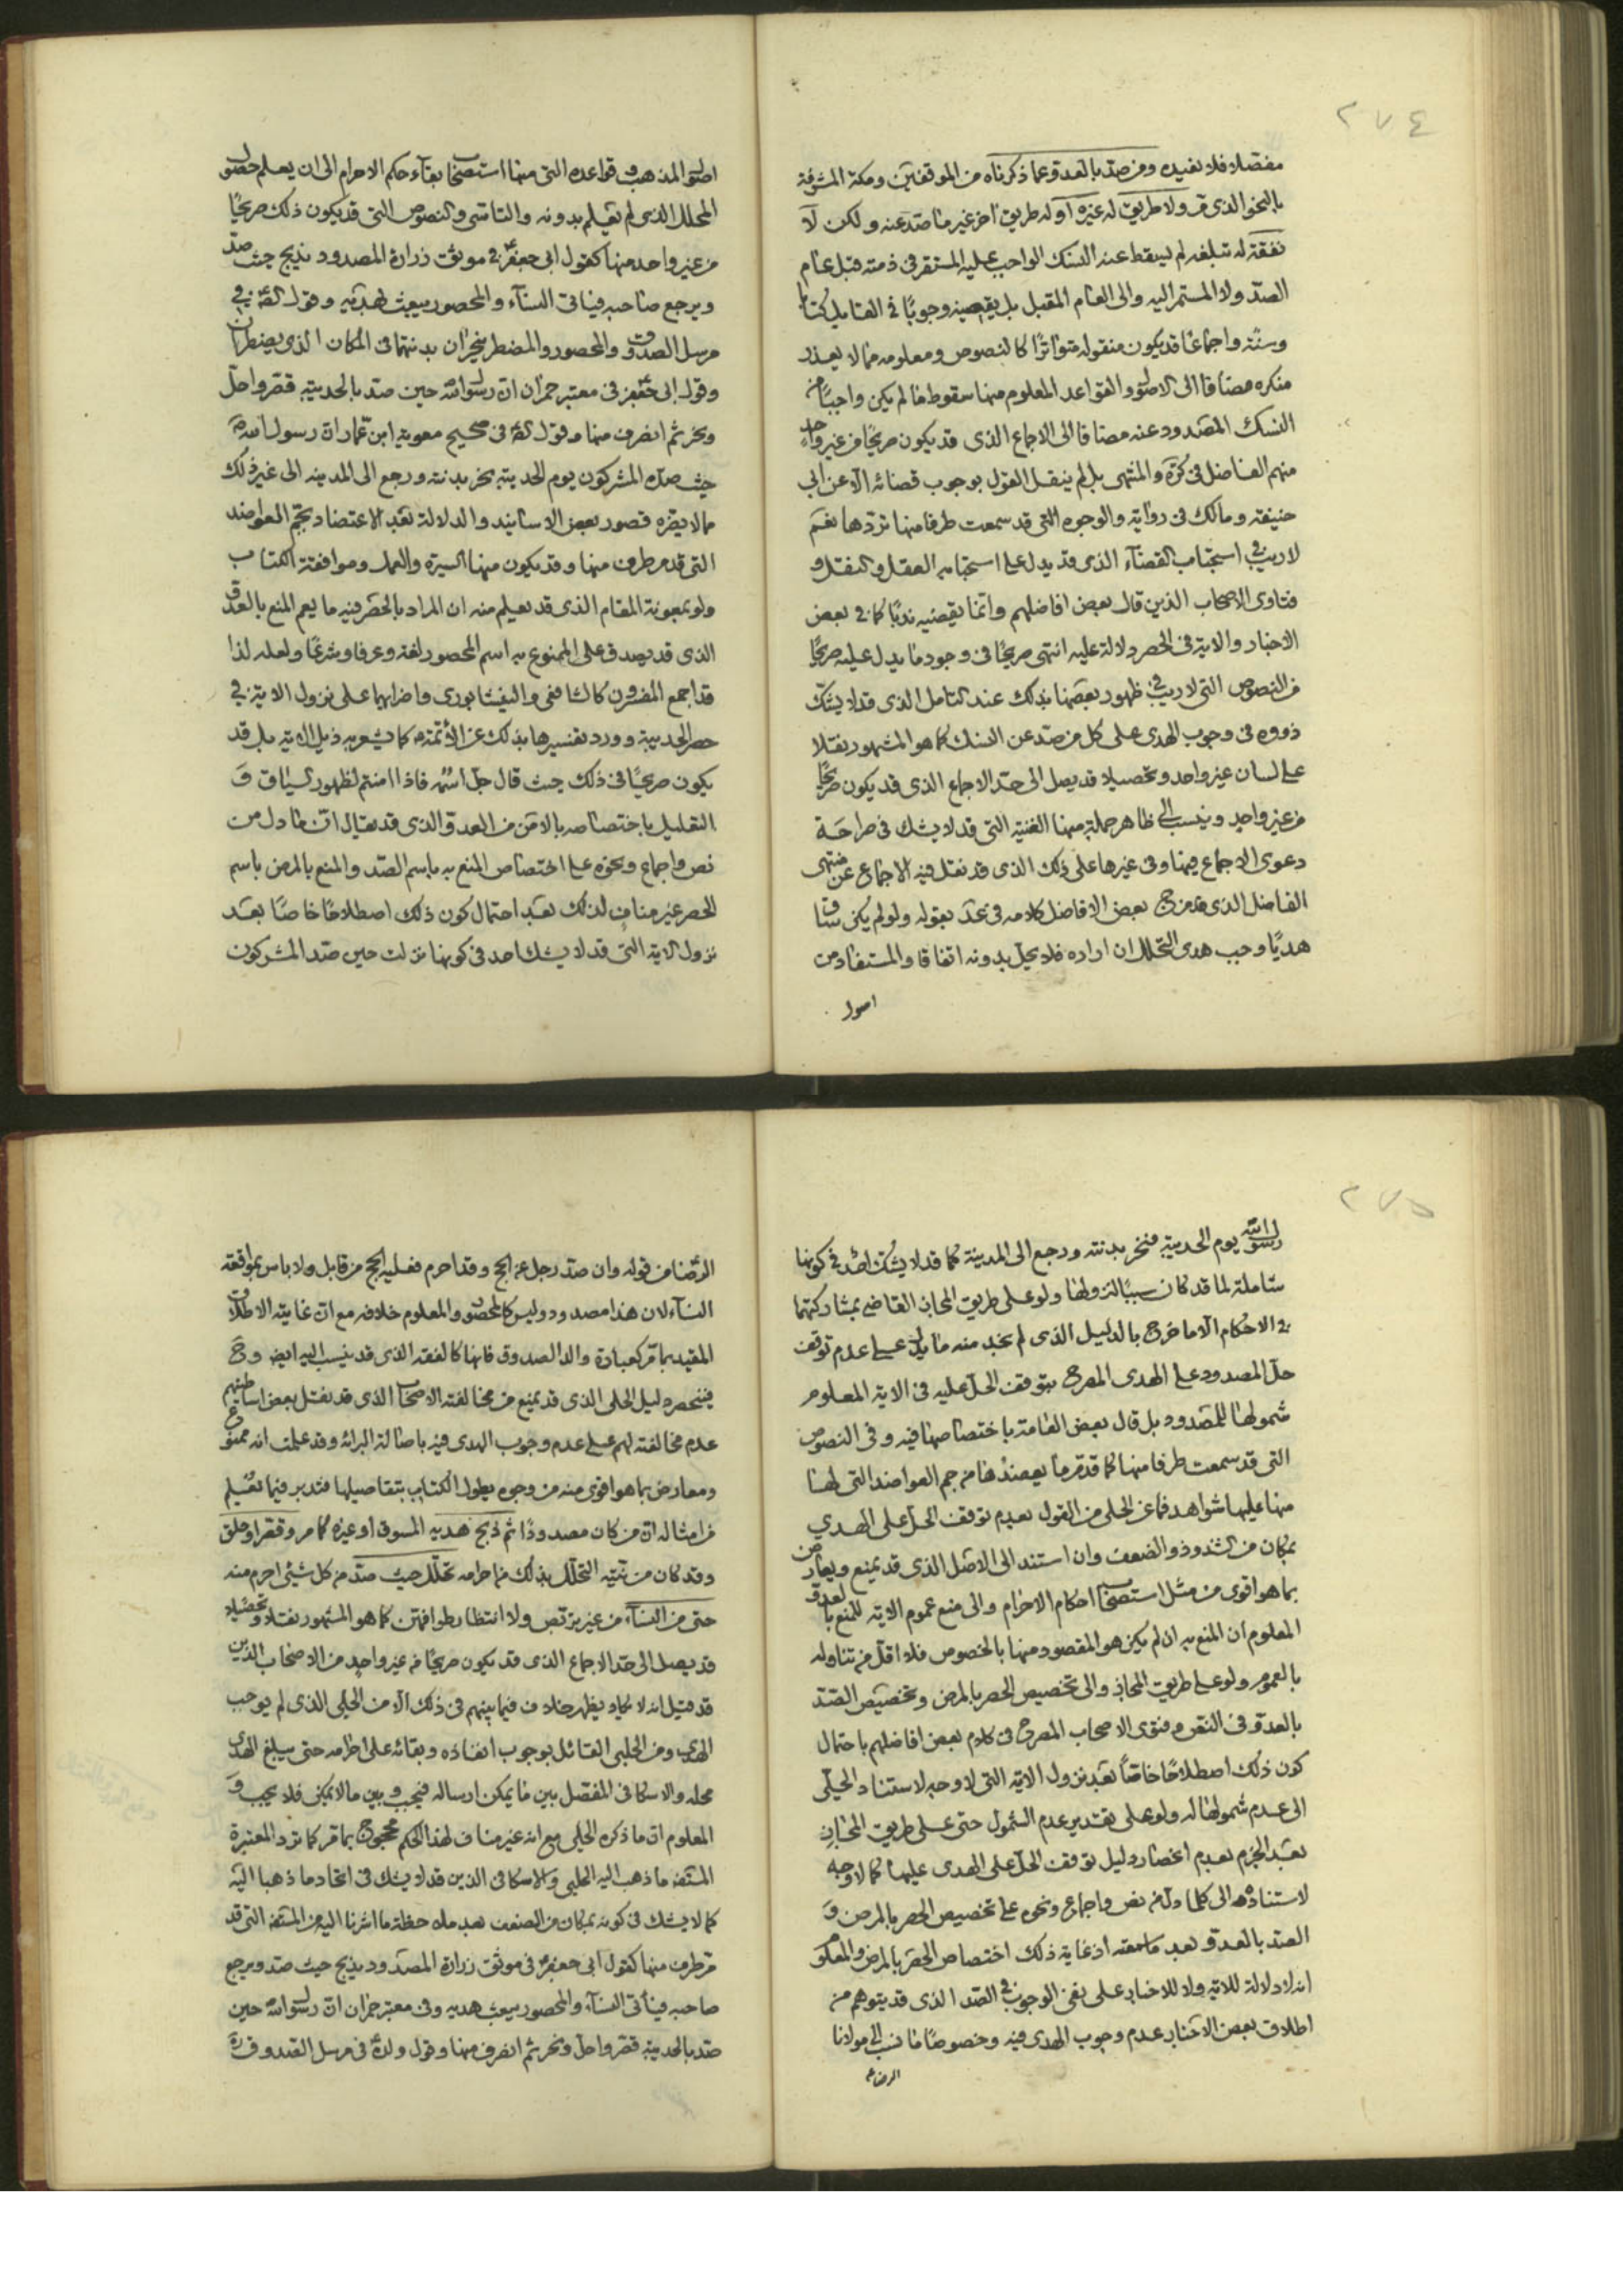 ٢٧٤
مفصلا فلا نعيده ومن صدّ بالعدو عما ذكرناه من الموقفين ومكة المشرفة
بالنحو الذى مر ولا طريق له غيره او له طريق اخر غير ما صد عنه ولكن لا
نفقة له تبلغه لم يسقط عنه النسك الواجب عليه المستقر فى ذمته قبل عام
الصدّ ولا المستمر اليه والى العام المقبل بل يقضيه وجوبًا فى القابل كتابا
وسنّة واجماعًا قد يكون منقوله متواترًا كالنصوص ومعلومه مما لا يعذر
منكره مضافا الى الاصول والقواعد المعلوم منها سقوط ما لم يكن واجبًا من
النسك المصدود عنه مضافا الى الاجماع الذى قد يكون صريحًا من غير واحد
منهم الفاضل فى كرة والمنتهى بل لم ينقل القول بوجوب قضائه الا عن ابى
حنيفة ومالك فى رواية والوجوه التى قد سمعت طرفا منها تردّها نعم
لا ريب فى استحباب القضآء الذى قد يدل على استحبابه العقل والنقل و
فتاوى الاصحاب الذين قال بعض افاضلهم وانما يقضيه ندبًا كما فى بعض
الاخبار والاية فى الحصر دلالة عليه انتهى صريحًا فى وجود ما يدل عليه صريحًا
من النصوص التى لا ريب فى ظهور بعضها بذلك عند التامل الذى قد لا يشكّ
ذووه فى وجوب الهدى على كل من صد عن النسك كما هو المشهور نقلا
على لسان غير واحد وتحصيلا قد يصل الى حدّ الاجماع الذى قد يكون صريحًا
من غير واحد وينسب الى ظاهر جملة منها الغنية التى قد لا يشك فى صراحة
دعوى الاجماع فيها وفى غيرها على ذلك الذى قد نقل فيه الاجماع عن منتهى
الفاضل الذى قد مزج بعض الافاضل كلامه فى عد بقوله ولو لم يكن ساق
هديًا وجب هدى التحلل ان اراده فلا يحل بدونه اتفاقا والمستفاد من
اصول
اصول المذهب وقواعده التى منها استصحاب بقآء حكم الاحرام الى ان يعلم حصول
المحلل الذى لم يعلم بدونه والتاسّى والنصوص التى قد يكون ذلك صريحًا
من غير واحد منها كقول ابى جعفر ع فى موثق زرارة المصدود يذبح حيث صدّ
ويرجع صاحبه فياتى النسآء والمحصور يبعث بهديه وقول الصادق ع فى
مرسل الصدوق والمحصور والمضطر ينحران بدنتهما فى المكان الذى يضطران
وقول ابى جعفر ع فى معتبر حمران ان رسول الله حين صدّ بالحديبية قصّر واحلّ
ونحر ثم انصرف منها وقول الصادق ع فى صحيح معوية ابن عمار ان رسول الله ص
حيث صدّه المشركون يوم الحديبية نحر بدنته ورجع الى المدينة الى غير ذلك
مما لا يضرّه قصور بعض الاسانيد والدلالة بعد الاعتضاد بجمّ العواضد
التى قد مر طرف منها وقد يكون منها السيرة والعمل وموافقة الكتاب
ولو بمعونة المقام الذى قد يعلم منه ان المراد بالحصر فيه ما يعم المنع بالعدوّ
الذى قد يصدق على الممنوع به اسم المحصور لغة وعرفا وشرعًا ولعله لذا
قد اجمع المفسرون كالشافعى والنيشابورى واضرابهما على نزول الاية فى
حصر الحديبية وورد تفسيرها بذلك عن الائمة ع كما يشعر به ذيل الاية بل قد
يكون صريحًا فى ذلك حيث قال جلّ اسمه فاذا امنتم لظهور السياق و
التقليل باختصاصه بالامن من العدو والذى قد يقال ان ما دل من
نص واجماع ونحوه على اختصاص المنع به باسم الصدّ والمنع بالمرض باسم
الحصر غير مناف لذلك بعد احتمال كون ذلك اصطلاحًا خاصًا بعد
نزول الاية التى قد لا يشك احد فى كونها نزلت حين صدّ المشركون
٢٧٥
رسول الله يوم الحديبية فنحر بدنته ورجع الى المدينة كما قد لا يشك احد فى كونها
شاملة لما قد كان سببًا لنزولها ولو على طريق المجاز القاضى بمشاركتهما
فى الاحكام الا ما خرج بالدليل الذى لم نجد منه ما يدل على عدم توقف
حلّ المصدود على الهدى المصرح بتوقف الحلّ عليه فى الاية المعلوم
شمولها للمصدود بل قال بعض العامة باختصاصها فيه وفى النصوص
التى قد سمعت طرفا منها كما قد مر ما يعضدها من جم العواضد التى لها
منها عليها شواهد فما عن الحلى من القول بعدم توقف الحلّ على الهدي
بمكان من الشذوذ والضعف وان استند الى الاصل الذى قد يمنع ويعارض
بما هو اقوى من مثل استصحاب احكام الاحرام والى منع عموم الاية للمنع بالعدوّ
المعلوم ان المنع به ان لم يكن هو المقصود منها بالخصوص فلا اقل من تناوله
بالعموم ولو على طريق المجاز والى تخصيص الحصر بالمرض وتخصيص الصدّ
بالعدوّ فى النص وفتوى الاصحاب المصرح فى كلام بعض افاضلهم باحتمال
كون ذلك اصطلاحًا خاصًا بعد نزول الاية التى لا وجه لاستناد الحلّى
الى عدم شمولها له ولو على تقدير عدم الشمول حتى على طريق المجاز
بعد الجزم بعدم انحصار دليل توقف الحلّ على الهدى عليها كما لا وجه
لاستناده الى كلما دل من نص واجماع ونحوه على تخصيص الحصر بالمرض و
الصدّ بالعدوّ بعد ما سمعته اذ غاية ذلك اختصاص الحصر بالمرض والمعلوم
انه لا دلالة للاية ولا للاخبار على نفى الوجوب فى الصدّ الذى قد يتوهم من
اطلاق بعض الاخبار عدم وجوب الهدى فيه وخصوصًا ما نسب الى مولانا
الرضا ع
الرضا من قوله وان صدّ رجل عن الحج وقد احرم فعليه الحج من قابل ولا باس بمواقعة
النسآء لان هذا مصدود وليس كالمحصور والمعلوم خلافه مع ان غايته الاطلاق
المقيد بما مرّ كعبارة والد الصدوق فانها كالفقه الذى قد ينسب اليه ايضا وح
فينحصر دليل الحلى الذى قد يمنع من مخالفته الاصحاب الذى قد نقل بعض اساطينهم
عدم مخالفته لهم على عدم وجوب الهدى فيه باصالة البرائة وقد علمت انه ممنوع
ومعارض بما هو اقوى منه من وجوه يطول الكتاب بتفاصيلها فتدبر فيما تعلم
من امثاله ان من كان مصدودًا ثم ذبح هديه المسوق او غيره كما مر وقصّر او حلق
وقد كان من نيّته التحلل بذلك من احرامه تحلّل حيث صدّ من كل شيئ احرم منه
حتى من النسآء من غير تربّص ولا انتظار طوافهنّ كما هو المشهور نقلا وتحصيلا
قد يصل الى حدّ الاجماع الذى قد يكون صريحًا من غير واحد من الاصحاب الذين
قد قيل انه لا يكاد يظهر خلاف فيما بينهم فى ذلك الا من الحلى الذى لم يوجب
الهدى ومن الحلبى القائل بوجوب انفاذه وبقائه على احرامه حتى يبلغ الهدى
محله والاسكافى المفصّل بين ما يمكن ارساله فيجب وبين ما لا يمكن فلا يجب و
المعلوم ان ما ذكره الحلى مع انه غير مناف لهذا الحكم محجوج بما مرّ كما ترد المعتبرة
المستفيضة ما ذهب اليه الحلبى والاسكافى الذين قد لا يشك فى اتحاد ما ذهبا اليه
كما لا يشك فى كونه بمكان من الضعف بعد ملاحظة ما اشرنا اليه من المستفيضة التى قد
مرّ طرف منها كقول ابى جعفر ع فى موثق زرارة المصدود يذبح حيث صدّ ويرجع
صاحبه فيأتى النسآء والمحصور يبعث هديه وفى معتبر حمران ان رسول الله حين
صدّ بالحديبية قصّر واحلّ ونحر ثم انصرف منها وقول ولده ع فى مرسل الصدوق ره